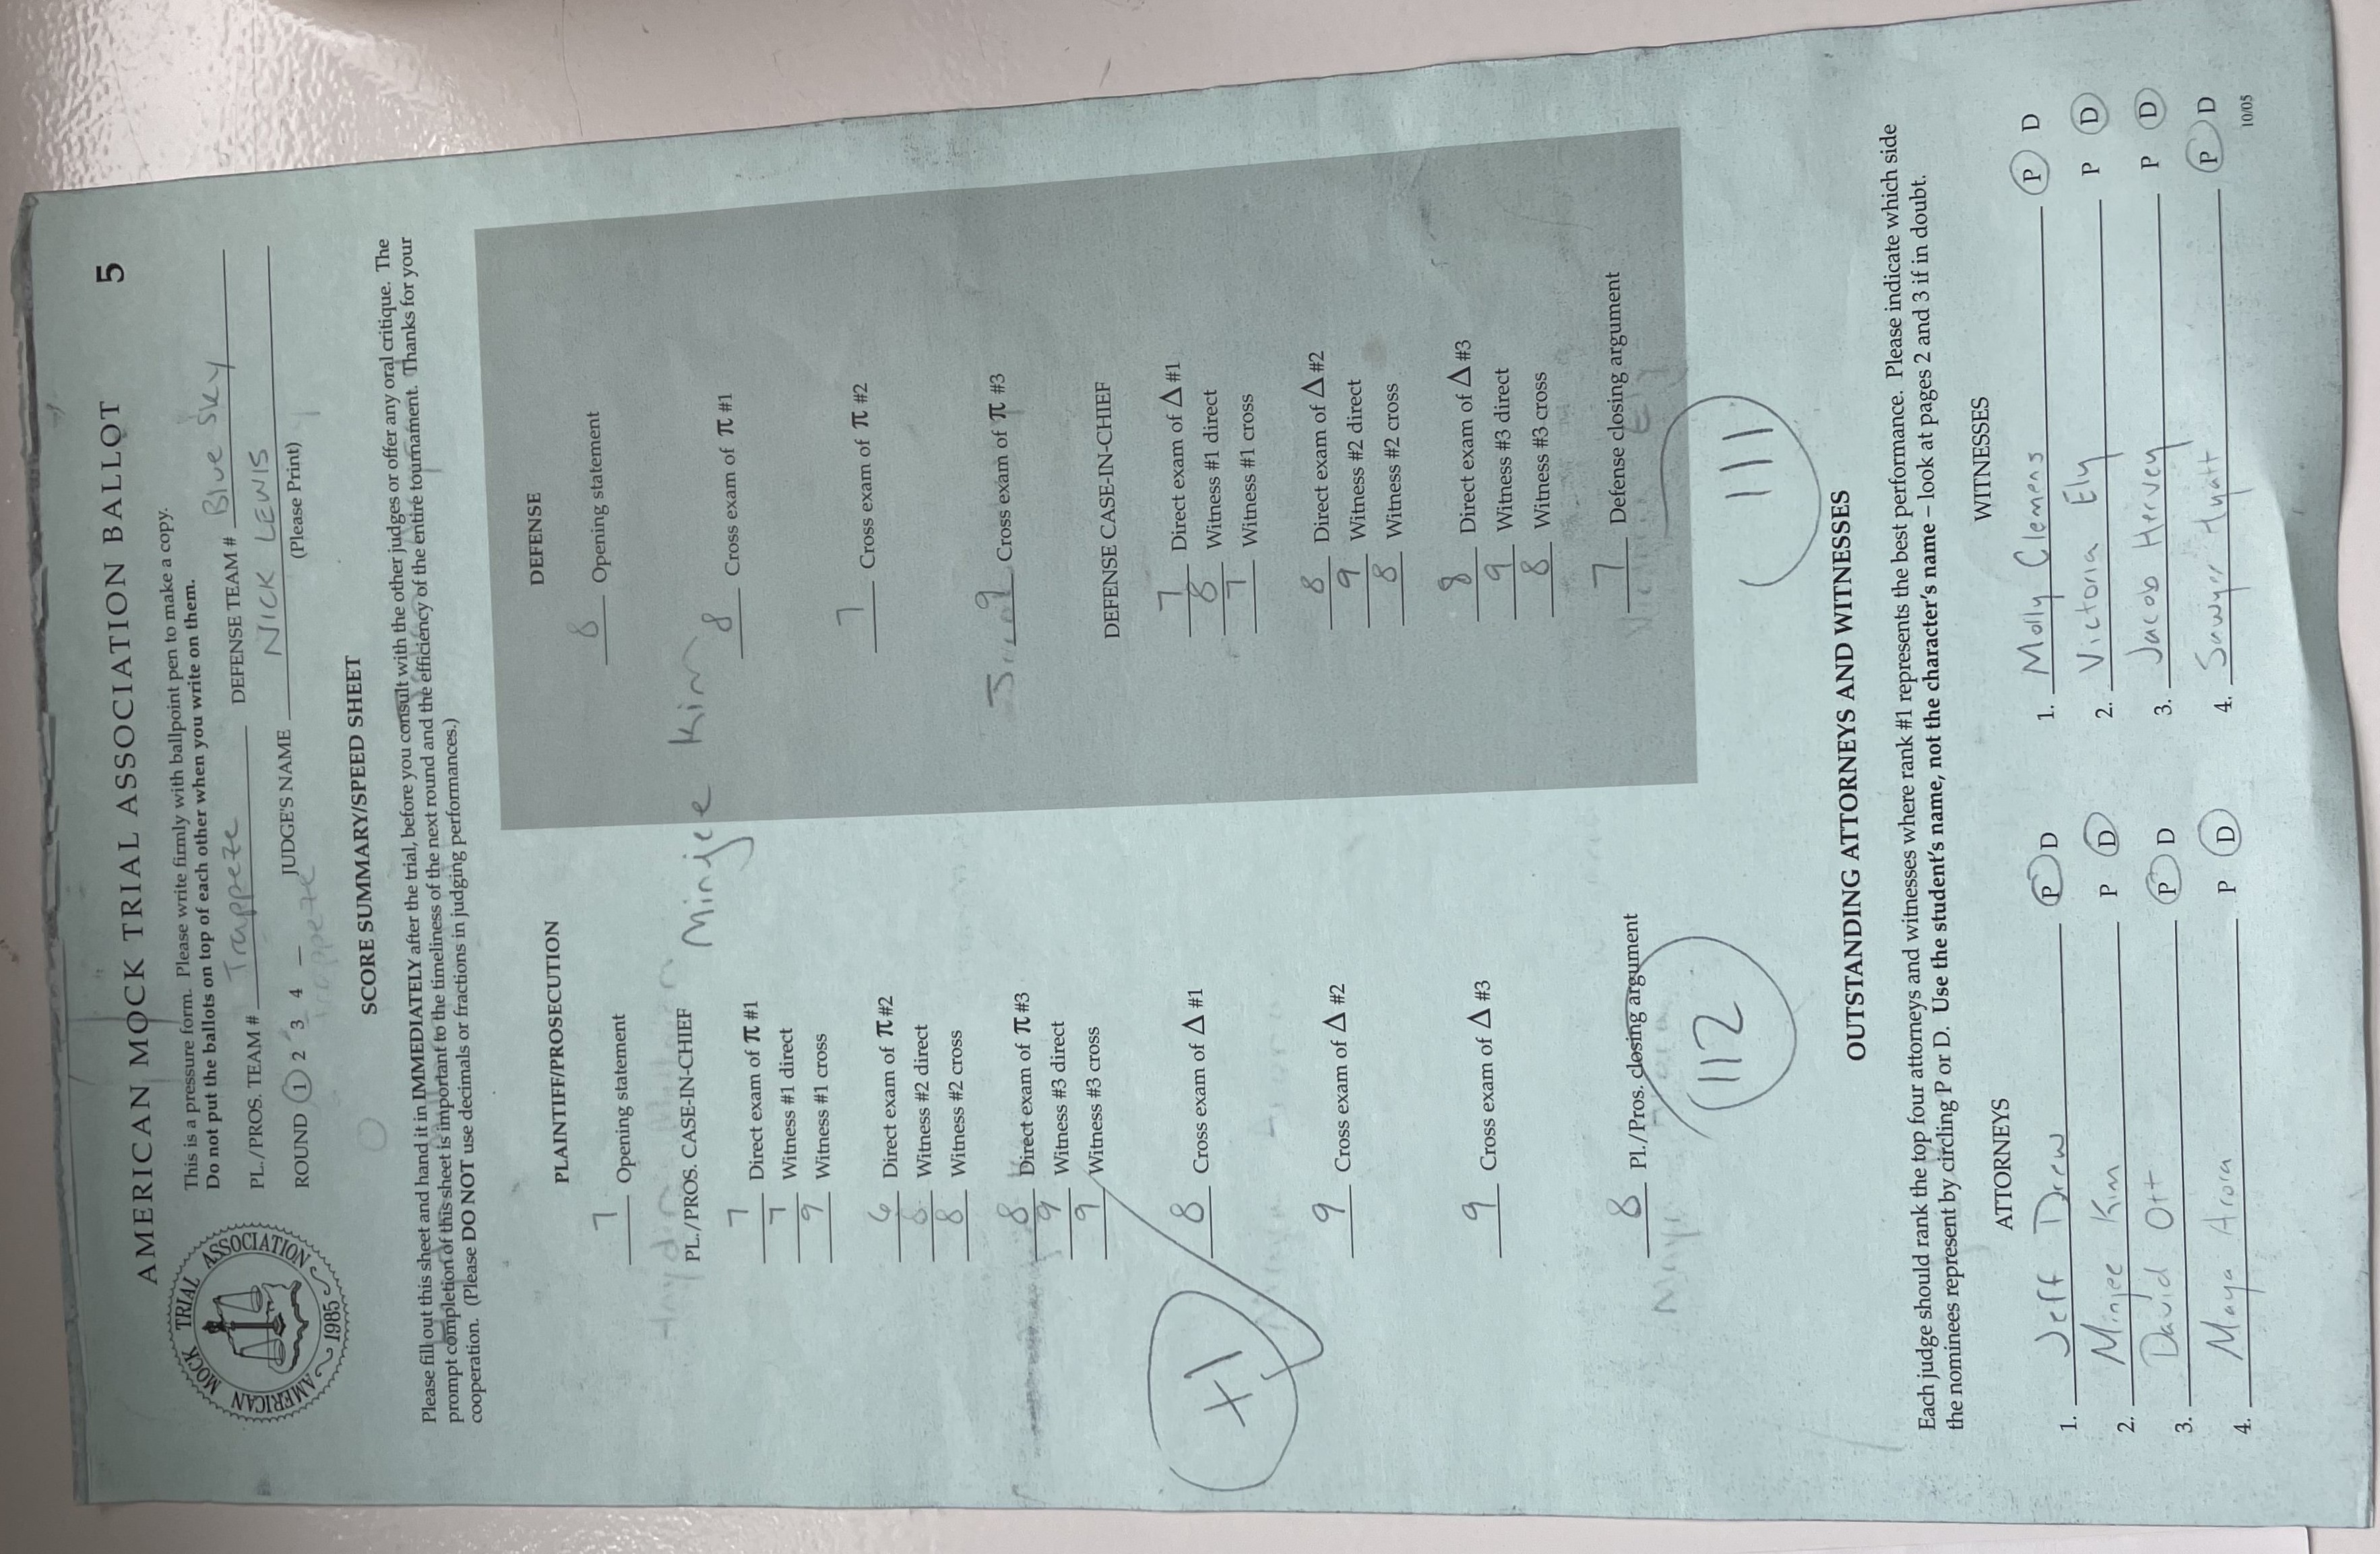 AMERICAN MOCK TRIAL ASSOCIATION BALLOT 5
AMERICAN MOCK TRIAL ASSOCIATION 1985
This is a pressure form. Please write firmly with ballpoint pen to make a copy.
Do not put the ballots on top of each other when you write on them.
PL./PROS. TEAM # Trappeze DEFENSE TEAM # Blue Sky
ROUND 1 2 3 4 — JUDGE'S NAME NICK LEWIS
(Please Print)
Trappeze
SCORE SUMMARY/SPEED SHEET
Please fill out this sheet and hand it in IMMEDIATELY after the trial, before you consult with the other judges or offer any oral critique. The
prompt completion of this sheet is important to the timeliness of the next round and the efficiency of the entire tournament. Thanks for your
cooperation. (Please DO NOT use decimals or fractions in judging performances.)
PLAINTIFF/PROSECUTION
7 Opening statement
PL./PROS. CASE-IN-CHIEF
Minjee Kim
7 Direct exam of π #1
7 Witness #1 direct
9 Witness #1 cross
6 Direct exam of π #2
8 Witness #2 direct
8 Witness #2 cross
8 Direct exam of π #3
9 Witness #3 direct
9 Witness #3 cross
+1
8 Cross exam of Δ #1
9 Cross exam of Δ #2
9 Cross exam of Δ #3
8 Pl./Pros. closing argument
112
DEFENSE
8 Opening statement
8 Cross exam of π #1
7 Cross exam of π #2
9 Cross exam of π #3
DEFENSE CASE-IN-CHIEF
7 Direct exam of Δ #1
8 Witness #1 direct
7 Witness #1 cross
8 Direct exam of Δ #2
9 Witness #2 direct
8 Witness #2 cross
8 Direct exam of Δ #3
9 Witness #3 direct
8 Witness #3 cross
7 Defense closing argument
Victoria Ely
111
OUTSTANDING ATTORNEYS AND WITNESSES
Each judge should rank the top four attorneys and witnesses where rank #1 represents the best performance. Please indicate which side
the nominees represent by circling P or D. Use the student's name, not the character's name – look at pages 2 and 3 if in doubt.
ATTORNEYS
1. Jeff Drew P D
2. Minjee Kim P D
3. David Ott P D
4. Maya Arora P D
WITNESSES
1. Molly Clemens P D
2. Victoria Ely P D
3. Jacob Hervey P D
4. Sawyer Hyatt P D
10/05